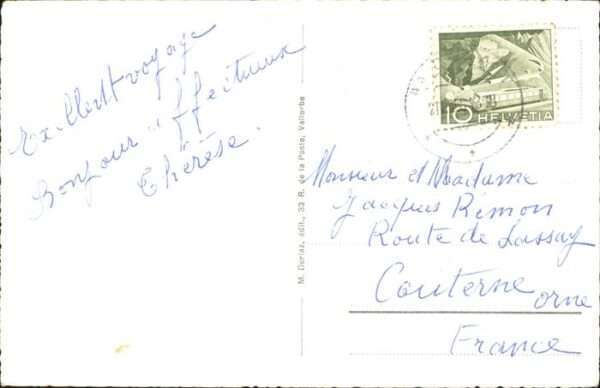 Excellent voyage
Bonjour affectueux
Thérèse.
M. Deriaz, édit., 33 R. de la Poste, Vallorbe
10 HELVETIA
Monsieur et Madame
Jacques Rimon
Route de Lassay
Couterne
Orne
France